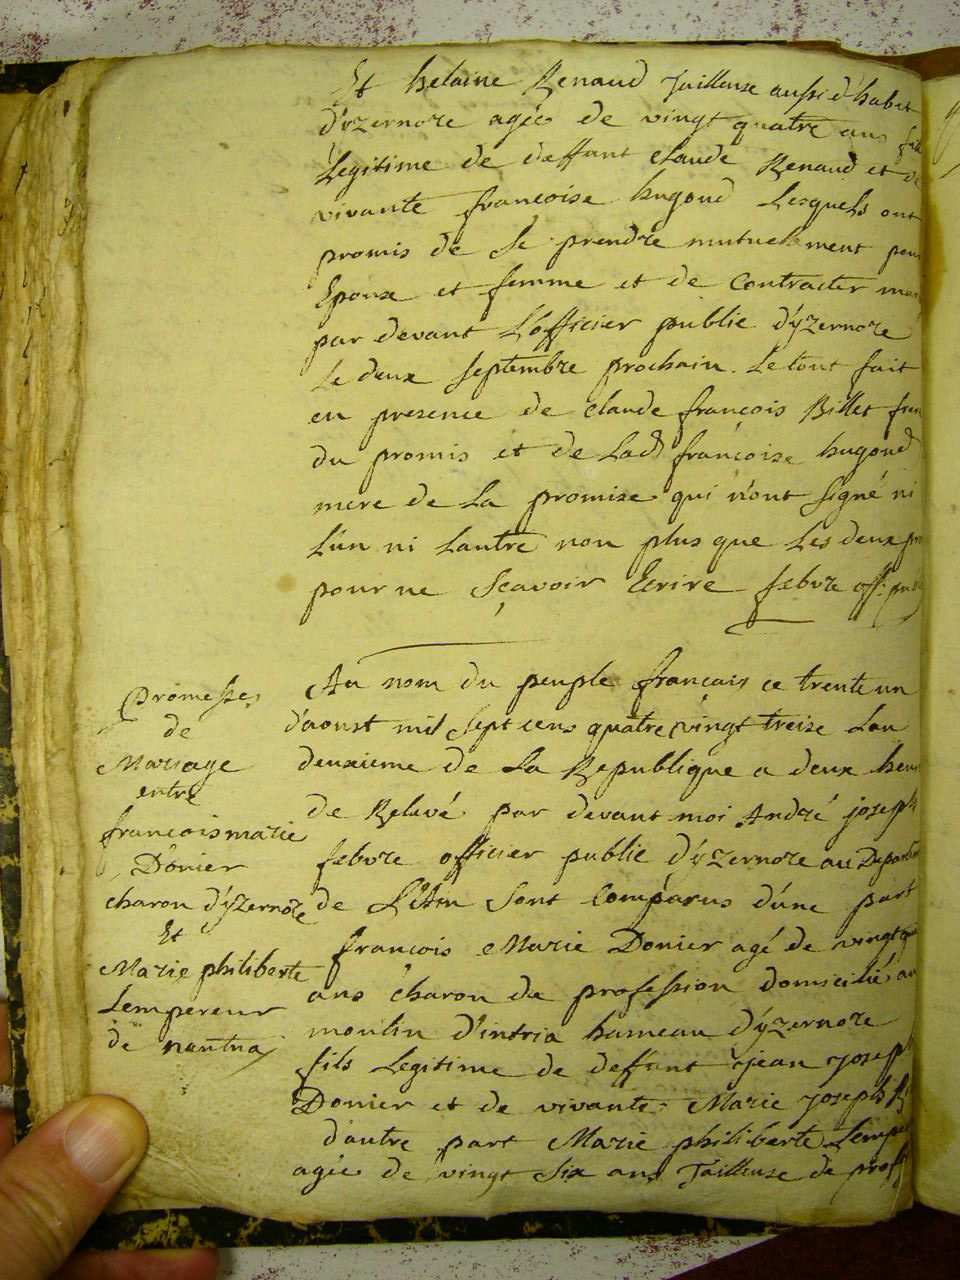 Et helaine Renaud Tailleuse aussi d'habet
d'yzernore agée de vingt quatre ans fille
Legitime de deffunt claude Renaud et de
vivante francoise hugond Lesquels ont
promis de se prendre mutuelement pour
Epoux et femme et de Contracter
par devant L'officier public d'yzernore
Le deux septembre prochain. Le tout fait
en presence de claude françois Billet
du promis et de Lad françoise hugond
mere de La promise qui n'ont signé ni
L'un ni L'autre non plus que Les deux
pour ne sçavoir Ecrire febvre off: pub
Promesses
de
Mariage
entre
francois marie
Donier
charon d'yzernore
Et
Marie philiberte
Lempereur
de nantua
Au nom du peuple français ce trente un
d'aoust mil sept cens quatre vingt treize L'an
deuxieme de La Republique a deux heures
de Relevé par devant moi André joseph
febvre officier public d'yzernore au Departem
de L'Ain sont Comparus d'une part
françois Marie Donier agé de vingt
ans charon de profession domicilié au
moulin d'intria hameau d'yzernore
fils Legitime de deffunt jean Joseph
Donier et de vivante Marie Joseph
d'autre part Marie philiberte Lempe
agée de vingt six ans Tailleuse de prof